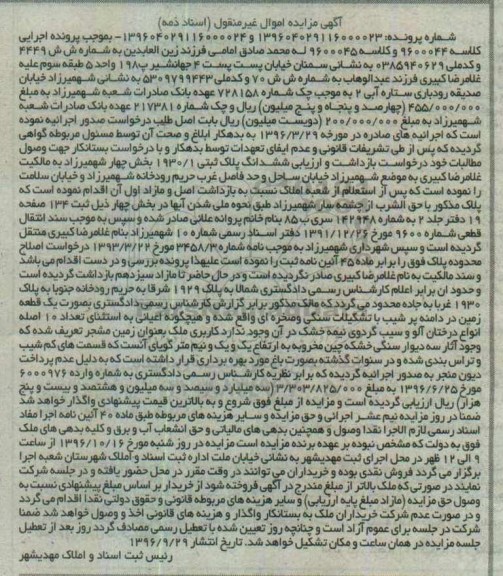 آگهی مزایده اموال غیرمنقول (اسناد ذمه)
شماره پرونده: ۱۳۹۶۰۴۰۲۹۱۱۶۰۰۰۰۲۳ و ۱۳۹۶۰۴۰۲۹۱۱۶۰۰۰۰۲۴- بموجب پرونده اجرایی
کلاسه ۹۶۰۰۰۴۴ و کلاسه ۹۶۰۰۰۴۵ له محمد صادق امامی فرزند زین العابدین به شماره ش ش ۴۴۴۹
و کدملی ۰۳۸۵۹۴۰۶۲۹ به نشانی سمنان خیابان پست پست ۴ جهانشیر پ۱۹۸ واحد ۵ طبقه سوم علیه
غلامرضا کبیری فرزند عبدالوهاب به شماره ش ش ۷۰ و کدملی ۵۳۰۹۷۹۹۴۴۳ به نشانی شهمیرزاد خیابان
صدیقه رودباری ستاره آبی ۲ به موجب چک شماره ۷۲۸۱۵۸ عهده بانک صادرات شعبه شهمیرزاد به مبلغ
۴۵۵/۰۰۰/۰۰۰ (چهارصد و پنجاه و پنج میلیون) ریال و چک شماره ۲۱۷۳۸۱ عهده بانک صادرات شعبه
شهمیرزاد به مبلغ ۲۰۰/۰۰۰/۰۰۰ (دویست میلیون) ریال بابت اصل طلب درخواست صدور اجرائیه نموده
است که اجرائیه های صادره در مورخه ۱۳۹۶/۳/۲۹ به بدهکار ابلاغ و صحت آن توسط مسئول مربوطه گواهی
گردیده که پس از طی تشریفات قانونی و عدم ایفای تعهدات توسط بدهکار و با درخواست بستانکار جهت وصول
مطالبات خود درخواست بازداشت و ارزیابی ششدانگ پلاک ثبتی ۱۹۳۰/۱ بخش چهار شهمیرزاد به مالکیت
غلامرضا کبیری به موضع شهمیرزاد خیابان ساحل و حد فاصل غرب حریم رودخانه شهمیرزاد و خیابان سلامت
را نموده است که پس از استعلام از شعبه املاک نسبت به بازداشت اصل و مازاد اول آن اقدام نموده است که
پلاک مذکور با حق الشرب از چشمه سار شهمیرزاد طبق نحوه ملی شدن آبها در بخش چهار ذیل ثبت ۱۳۴ صفحه
۱۹ دفتر جلد ۲ به شماره ۱۴۲۹۴۸ سری ب ۸۵ بنام خانم پروانه علائی صادر شده و سپس به موجب سند انتقال
قطعی شماره ۹۶۰۰ مورخ ۱۳۹۱/۱۲/۲۶ دفتر اسناد رسمی شماره ۱۰ شهمیرزاد بنام غلامرضا کبیری منتقل
گردیده است و سپس شهرداری شهمیرزاد به موجب نامه شماره ۳۴۵۸/۳ مورخ ۱۳۹۳/۳/۲۲ درخواست اصلاح
محدوده پلاک فوق را برابر ماده ۴۵ آئین نامه ثبت را نموده است علیهذا پرونده بررسی و در دست اقدام می باشد
و سند مالکیت به نام غلامرضا کبیری صادر نگردیده است و در حال حاضر تا مازاد سیزدهم بازداشت گردیده است
و حدود آن برابر اعلام کارشناس رسمی دادگستری شمالا به پلاک ۱۹۲۹ شرقا به حریم رودخانه جنوبا به پلاک
۱۹۳۰ غربا به جاده محدود می گردد که مالک مذکور برابر گزارش کارشناس رسمی دادگستری بصورت یک قطعه
زمین در دامنه پر شیب با تشکیلات سنگی وصخره ای واقع شده و هیچگونه اعیانی به استثنای تعداد ۱۰ اصله
انواع درختان آلو و سیب گردوی نیمه خشک در آن وجود ندارد کاربری ملک بعنوان زمین مشجر تعریف شده که
وجود آثار سه دیوار سنگی خشکه چین مخروبه به ارتفاع یک و یک و نیم متر گویای آنست که قسمت های کم شیب
و تراس بندی شده و در سنوات گذشته بصورت باغ مورد بهره برداری قرار داشته است که به دلیل عدم پرداخت
دیون منجر به صدور اجرائیه گردیده که برابر نظریه کارشناس رسمی دادگستری به شماره وارده ۶۰۰۰۹۷۶
مورخ ۱۳۹۶/۶/۲۵ به مبلغ ۳/۳۰۳/۸۲۵/۰۰۰ (سه میلیارد و سیصد و سه میلیون و هشتصد و بیست و پنج
هزار) ریال ارزیابی گردیده است و مزایده از مبلغ فوق شروع و به بالاترین قیمت پیشنهادی واگذار خواهد شد
ضمنا در روز مزایده نیم عشر اجرائی و حق مزایده و سایر هزینه های مربوطه طبق ماده ۴۰ آئین نامه اجرا مفاد
اسناد رسمی لازم الاجرا نقدا وصول و همچنین بدهی های مالیاتی و حق انشعاب آب و برق و کلیه بدهی های ملک
فوق به دولت که مشخص نبوده بر عهده برنده مزایده است مزایده در روز شنبه مورخ ۱۳۹۶/۱۰/۱۶ از ساعت
۹ الی ۱۲ ظهر در محل اجرای ثبت مهدیشهر به نشانی خیابان ملت اداره ثبت اسناد و املاک شهرستان شعبه اجرا
برگزار می گردد فروش نقدی بوده و خریداران می توانند در وقت مقرر در محل حضور یافته و در جلسه شرکت
نمایند در صورتی که ملک بالاتر از مبلغ مندرج در آگهی فروخته شود از خریدار بر اساس مبلغ پیشنهادی نسبت به
وصول حق مزایده (مازاد مبلغ پایه ارزیابی) و سایر هزینه های مربوطه قانونی و حقوق دولتی نقدا اقدام می گردد
و در صورت عدم شرکت خریداران ملک به بستانکار واگذار و هزینه های قانونی اخذ و وصول خواهد شد ضمنا
شرکت در جلسه برای عموم آزاد است و چنانچه روز تعیین شده با تعطیل رسمی مصادف گردد روز بعد از تعطیل
جلسه مزایده در همان ساعت و مکان تشکیل خواهد شد. تاریخ انتشار ۱۳۹۶/۹/۲۹
رئیس ثبت اسناد و املاک مهدیشهر